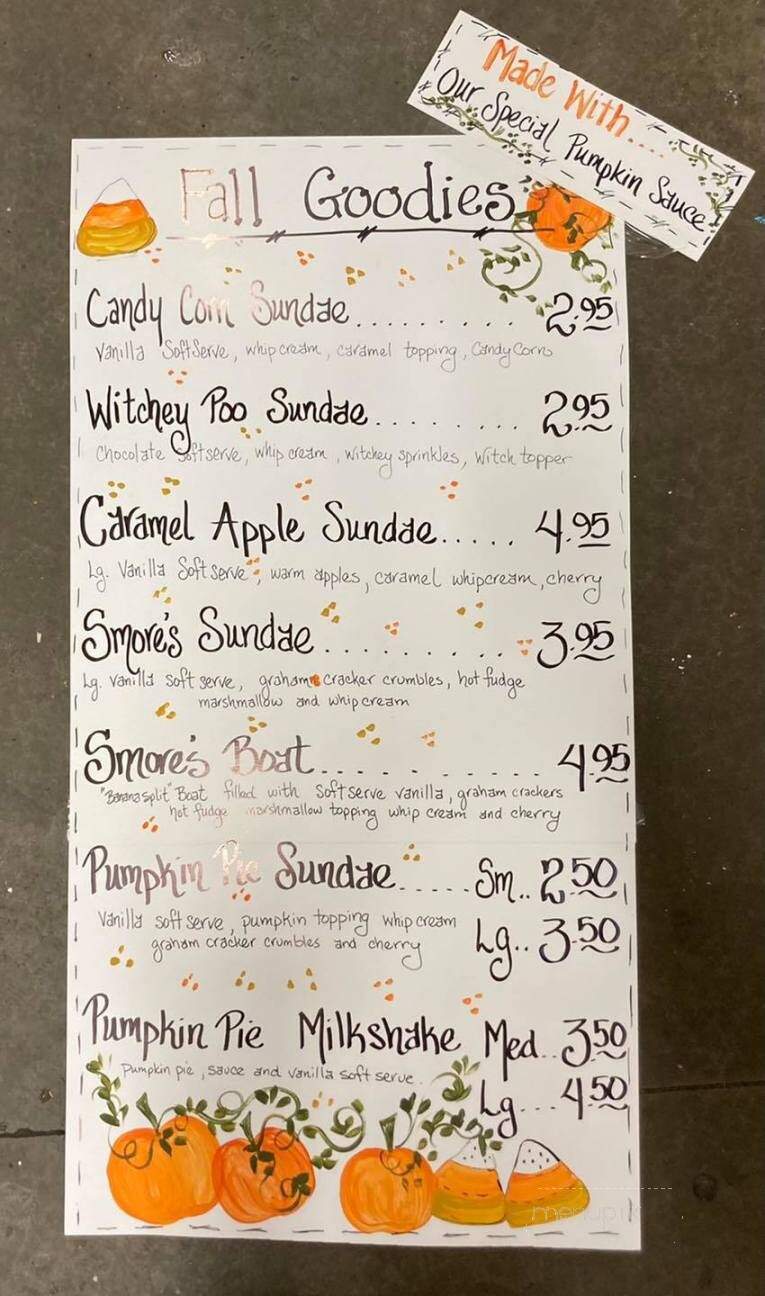 Made With....
Our Special Pumpkin Sauce
Fall Goodies
Candy Corn Sundae......... 2.95
Vanilla Soft Serve, whip cream, caramel topping, Candy Corn
Witchey Poo Sundae......... 2.95
Chocolate Softserve, whip cream, witchey sprinkles, witch topper
Caramel Apple Sundae..... 4.95
Lg. Vanilla Soft serve, warm apples, caramel whipcream, cherry
Smore's Sundae.......... 3.95
Lg. vanilla soft serve, graham cracker crumbles, hot fudge
marshmallow and whip cream
Smore's Boat........... 4.95
"Banana split" Boat filled with Soft serve vanilla, graham crackers
hot fudge marshmallow topping whip cream and cherry
Pumpkin Pie Sundae..... Sm.. 2.50
Vanilla soft serve, pumpkin topping whip cream
Lg.. 3.50
graham cracker crumbles and cherry
Pumpkin Pie Milkshake Med.. 3.50
Pumpkin pie, sauce and vanilla soft serve.
Lg... 4.50